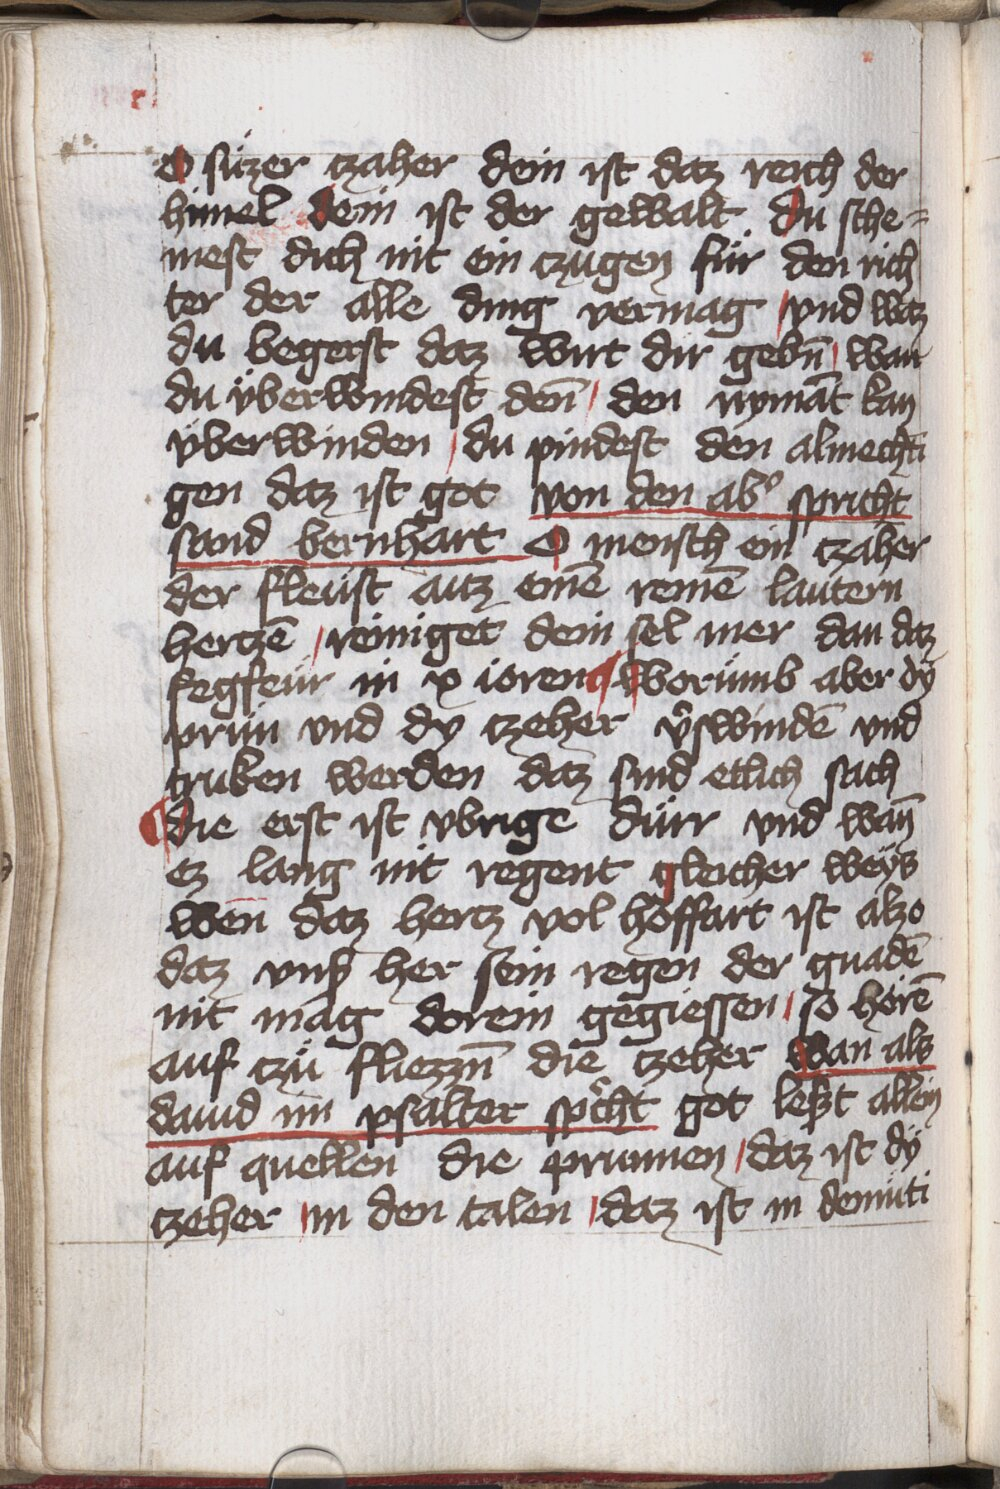 O süzer czaher dein ist daz reich der
himel dein ist der gewalt du sche=
mest dich nit ein czügen für den rich
ter der alle ding vermag / vnd waz
du begerst daz wirt dir gebn̄ / wan
du vberwindest den̄ / den nymāt kan
vberwinden / du pindest den almechti
gen daz ist got von den abͦ spricht
sand bernhart O mensch ein czaher
der fleust autz einē reinē lautern
hertzē / reiniget dein sel mer dan daz
fegfeür in x ioren ¶ Worümb aber dÿ
prün vnd dy czeher v̂swindē vnd
truken werden daz sind etlich sach
¶ die erst ist vbrige dürr vnd wan̄
ez lang nit regent gleicher weÿs
wen daz hertz vol hoffart ist alzo
daz vnß her sein regen der gnadē
nit mag dorein gegiessen / so hörē
auf czü fliezzn̄ die czeher wan als
dauid im psalter spͥcht got leßt allein
auf quellen die prunnen / daz ist dÿ
czeher / in den talen / daz ist in demüti